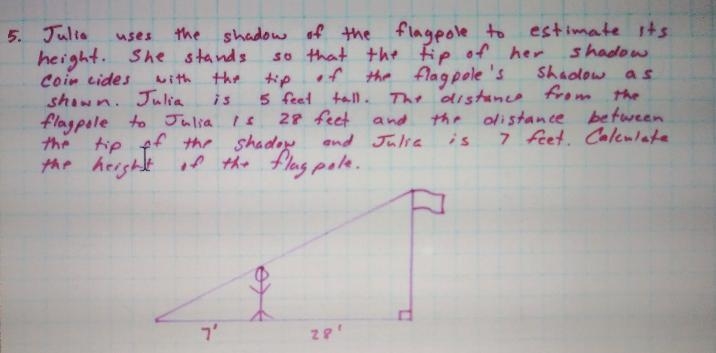 5. Julia uses the shadow of the flagpole to estimate its
height. She stands so that the tip of her shadow
Coincides with the tip of the flagpole's shadow as
shown. Julia is 5 feet tall. The distance from the
flagpole to Julia is 28 feet and the distance between
the tip of the shadow and Julia is 7 feet. Calculate
the height of the flagpole.
7' 28'